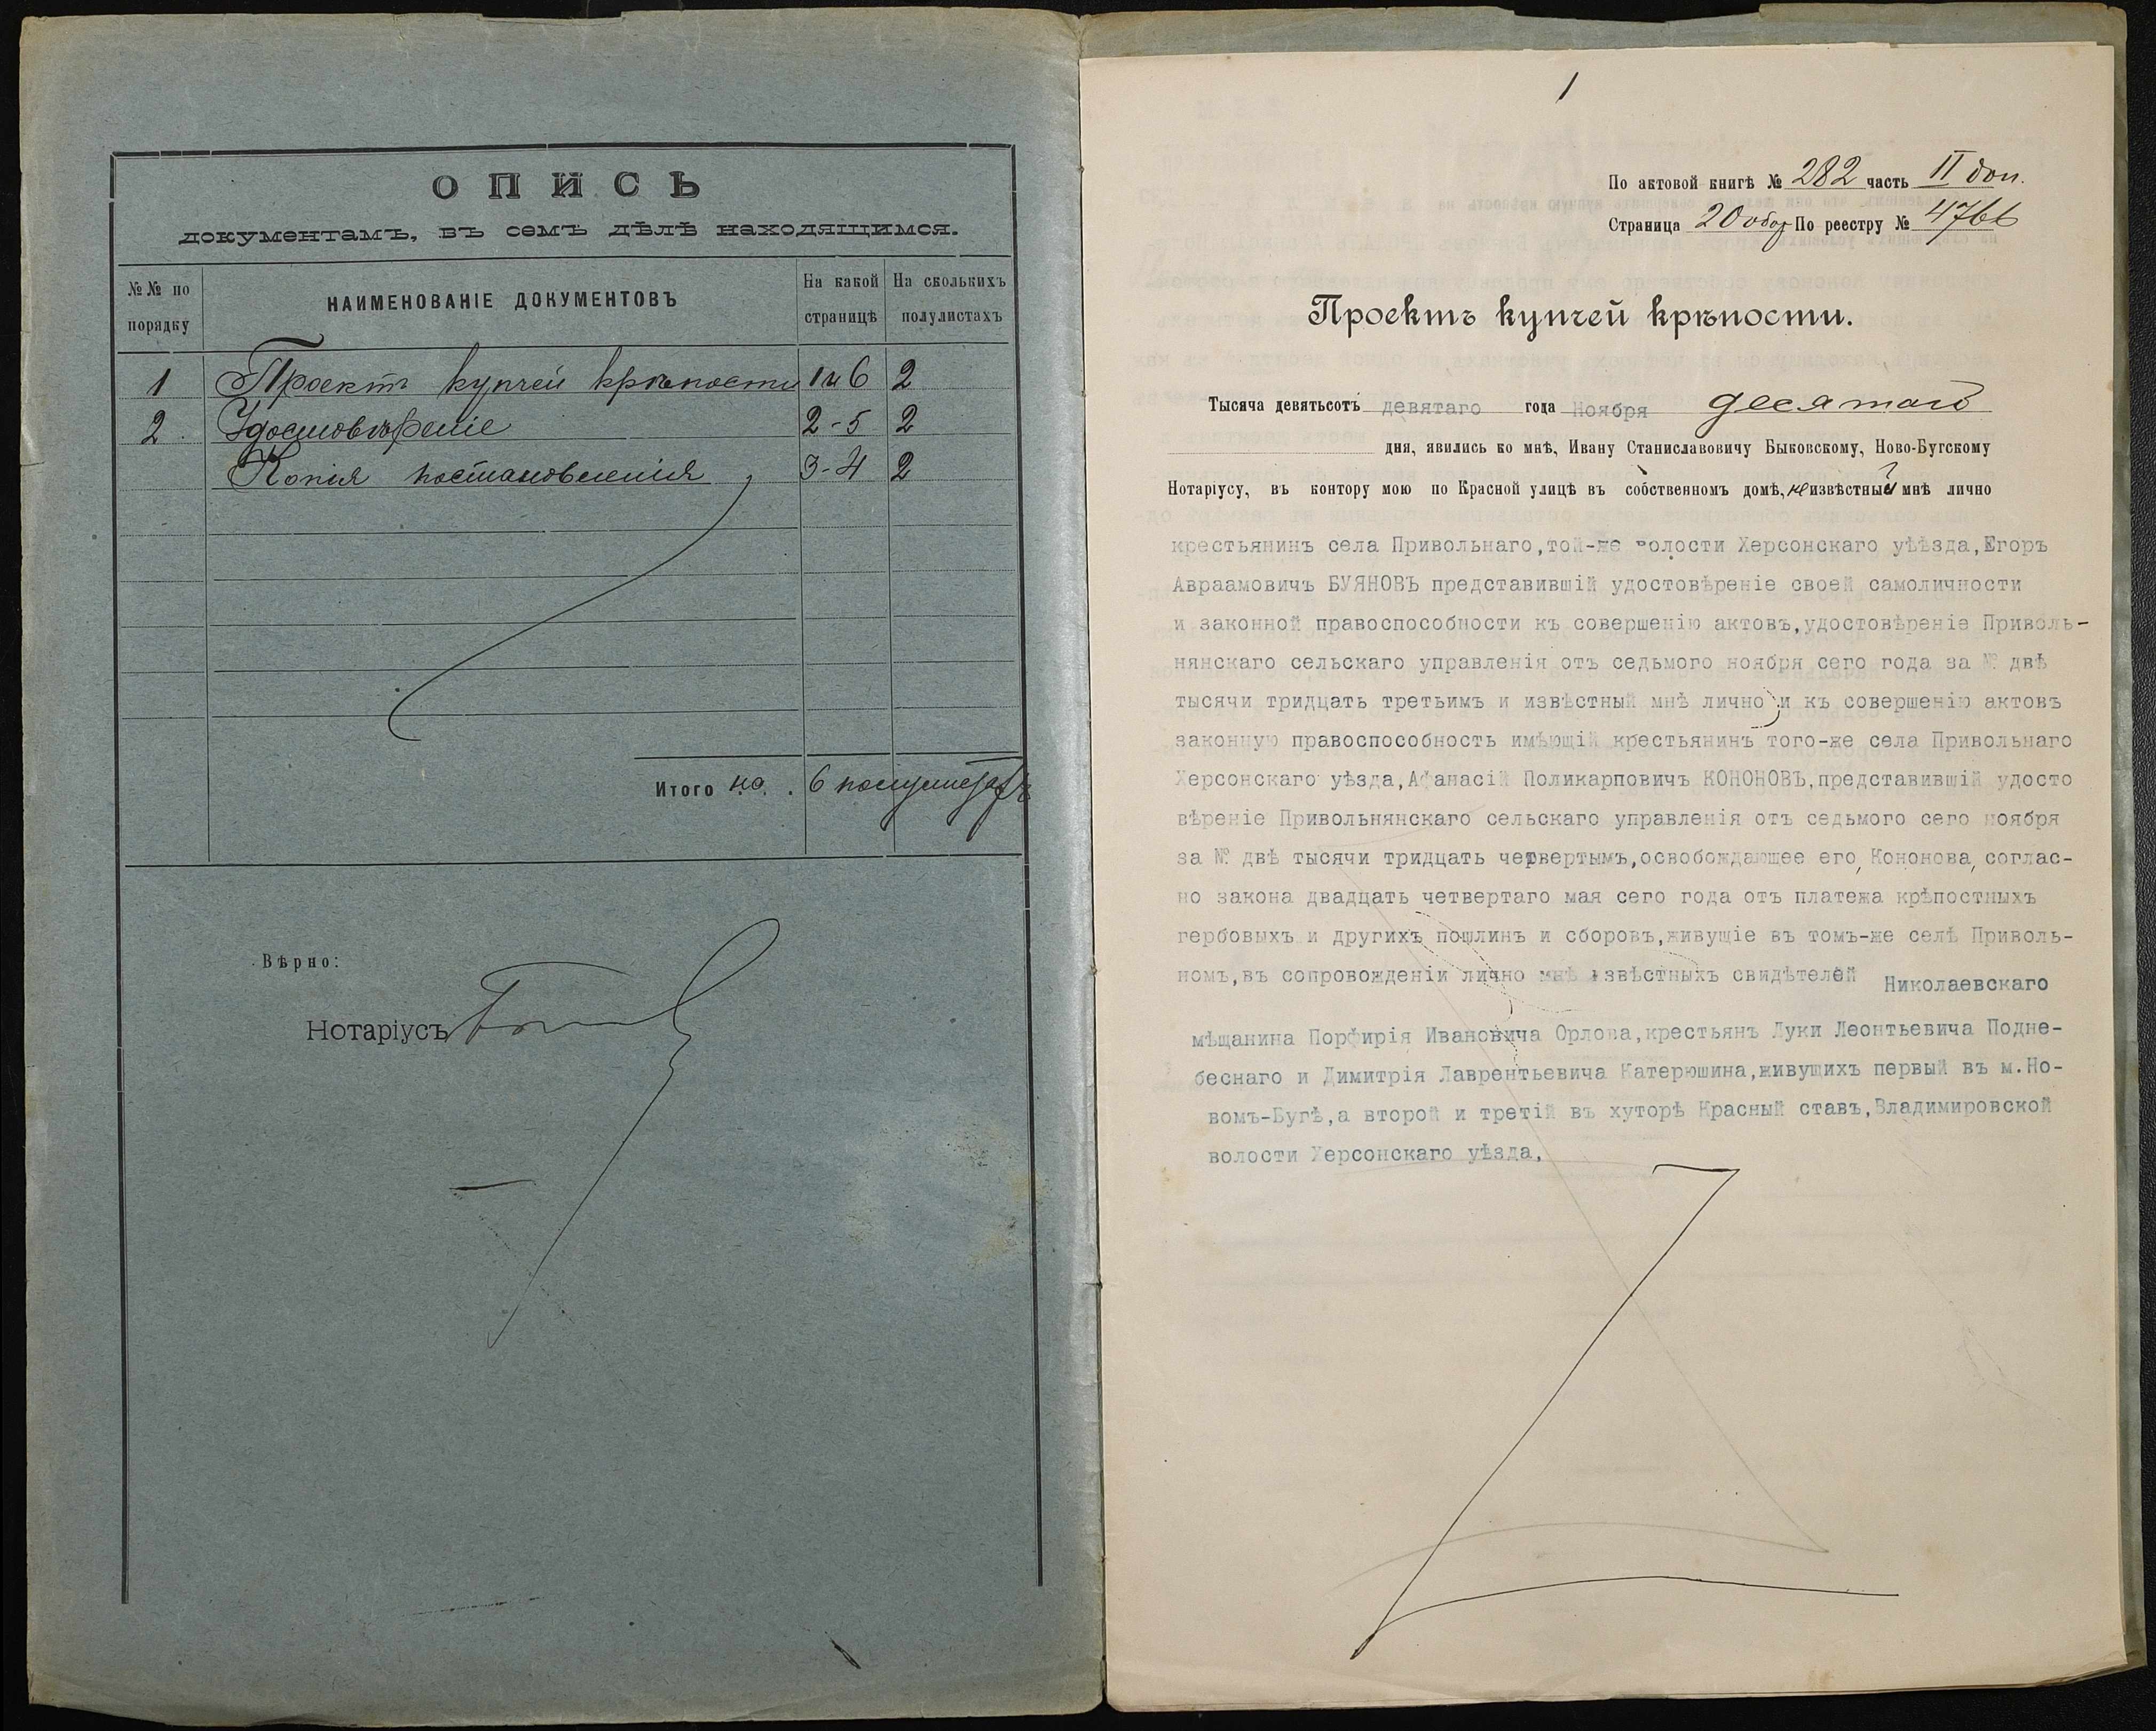 ОПИСЬ
документамъ, въ семъ дѣлѣ находящимся.
№№ по порядку
НАИМЕНОВАНІЕ ДОКУМЕНТОВЪ
На какой страницѣ
На сколькихъ полулистахъ
1 Проектъ купчей крѣпости 1 и 6 2
2. Удостовѣреніе 2-5 2
Копія постановленія 3-4 2
Итого на 6 полулистахъ
Вѣрно:
Нотаріусъ
1
По актовой книгѣ № 282 часть II доп.
Страница 20 обор По реестру № 4766
Проектъ купчей крѣпости.
Тысяча девятьсотъ девятаго года Ноября десятаго
дня, явились ко мнѣ, Ивану Станиславовичу Быковскому, Ново-Бугскому
Нотаріусу, въ контору мою по Красной улицѣ въ собственномъ домѣ, неизвѣстный мнѣ лично
крестьянинъ села Привольнаго,той-же волости Херсонскаго уѣѣзда,Егоръ
Авраамовичъ БУЯНОВЪ представившій удостовѣреніе своей самоличности
и законной правоспособности къ совершенію актовъ,удостовѣреніе Приволь-
нянскаго сельскаго управленія отъ седьмого ноября сего года за № двѣ
тысячи тридцать третьимъ и извѣстный мнѣ лично и къ совершенію актовъ
законную правоспособность имѣющій крестьянинъ того-же села Привольнаго
Херсонскаго уѣзда,Афанасій Поликарповичъ КОНОНОВЪ,представившій удосто
вѣреніе Привольнянскаго сельскаго управленія отъ седьмого сего ноября
за № двѣ тысячи тридцать четвертымъ,освобождающее его, Кононова, соглас-
но закона двадцать четвертаго мая сего года отъ платежа крѣпостныхъ
гербовыхъ и другихъ пошлинъ и сборовъ,живущіе въ томъ-же селѣ Приволь-
номъ,въ сопровожденіи лично мнѣ извѣстныхъ свидѣтелей Николаевскаго
мѣщанина Порфирія Ивановича Орлова,крестьянъ Луки Леонтьевича Подне-
беснаго и Димитрія Лаврентьевича Катерюшина,живущихъ первый въ м.Но-
вомъ-Бугѣ,а второй и третій въ хуторѣ Красный ставъ,Владимировской
волости Херсонскаго уѣзда,